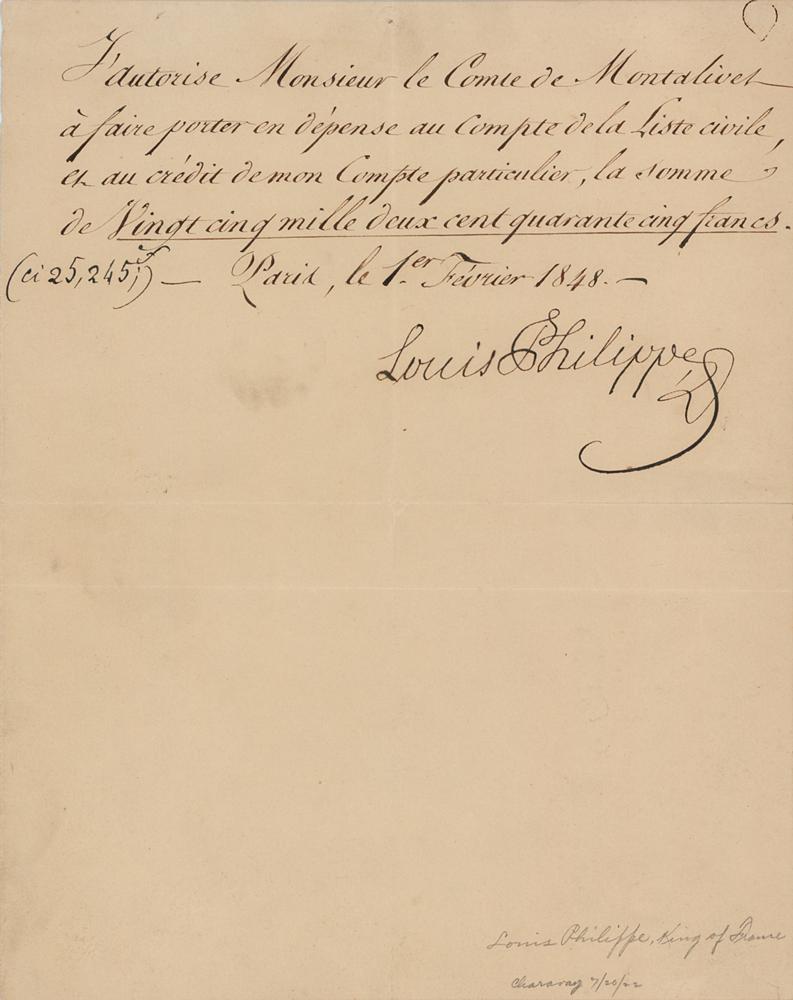 J'autorise Monsieur le Comte de Montalivet
à faire porter en dépense au Compte de la Liste civile,
et au crédit de mon Compte particulier, la somme
de Vingt cinq mille deux cent quarante cinq francs.
(ci 25,245 f) — Paris, le 1.er Février 1848. —
Louis Philippe
Louis Philippe, King of France
Charavay 7/20/22